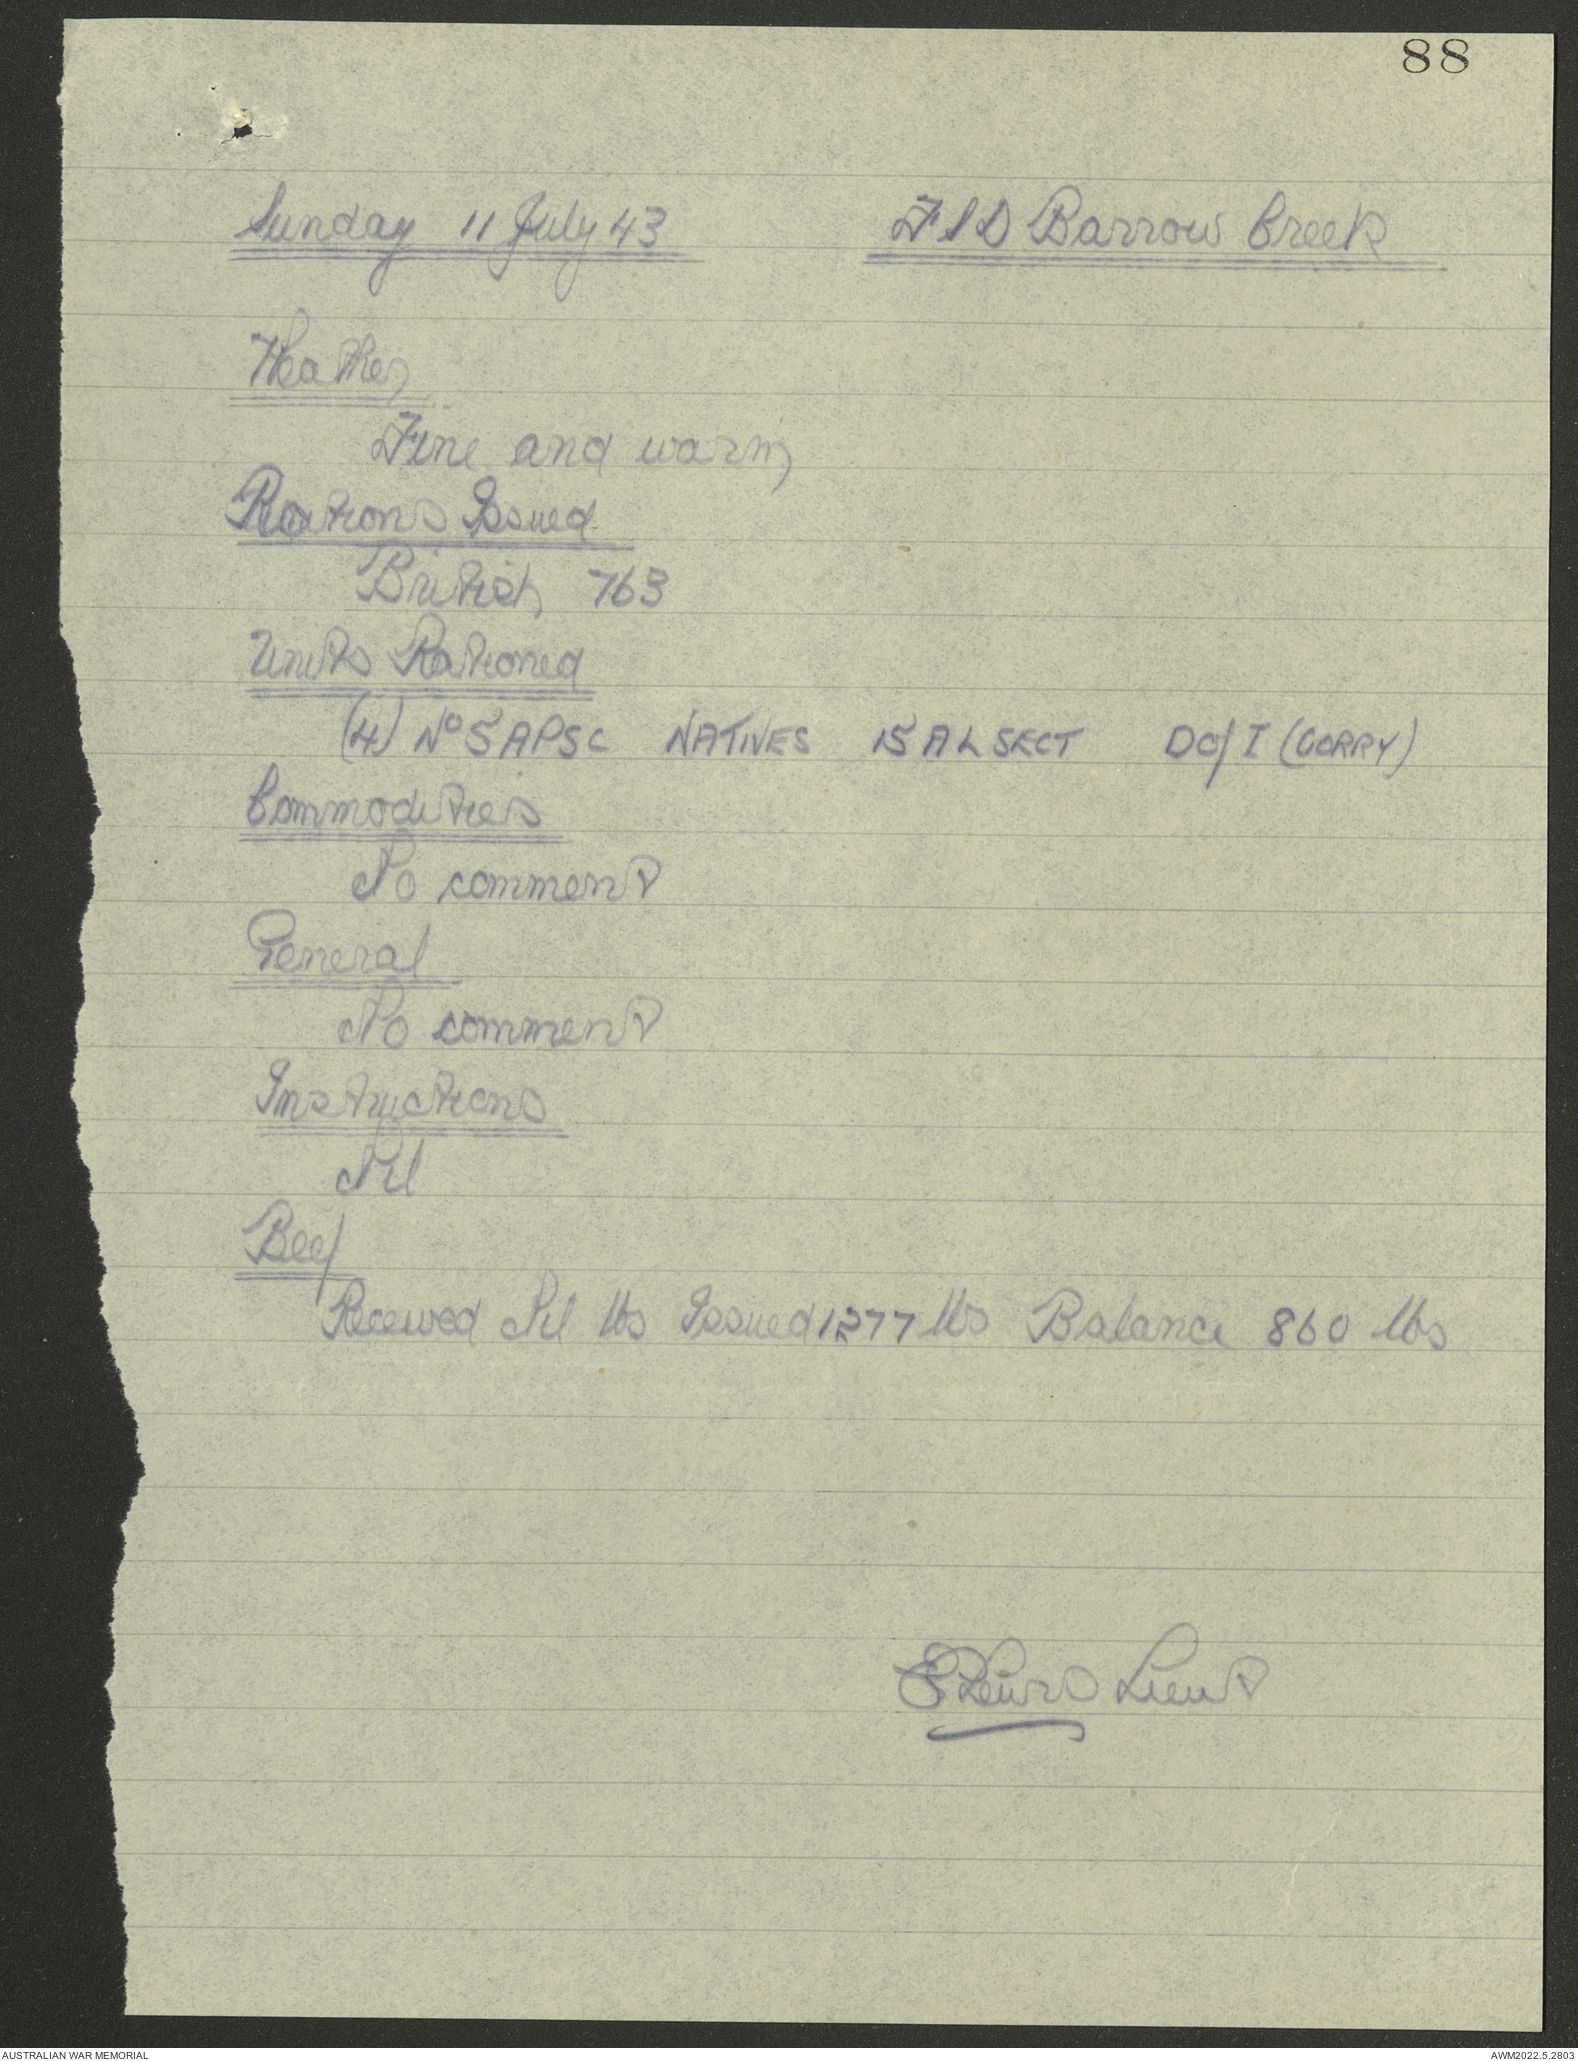 88
Sunday 11 July 43 FSD Barrow Creek
Weather
Fine and warm
Rations Issued
British 763
Units Rationed
(4) No 5 APSC NATIVES 15 AL SECT DO/I (CORRY)
Commodities
No comment
General
No comment
Instructions
Nil
Beef
Received Nil lbs Issued 1277 lbs Balance 860 lbs
Lieut
AUSTRALIAN WAR MEMORIAL AWM2022.5.2803